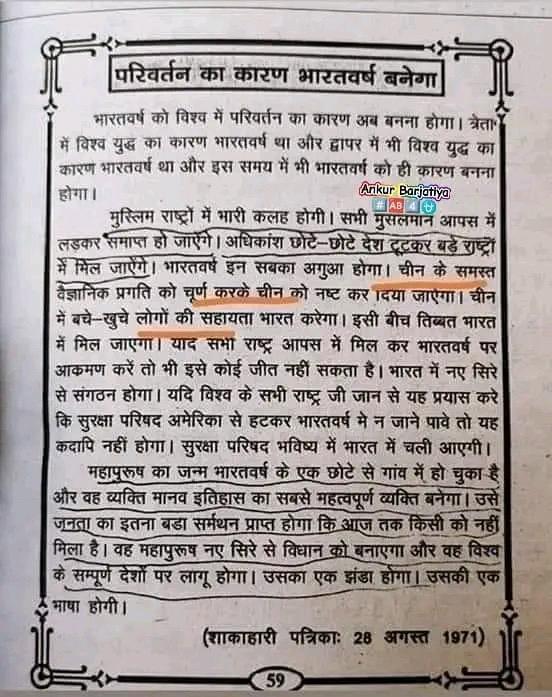 परिवर्तन का कारण भारतवर्ष बनेगा
भारतवर्ष को विश्व में परिवर्तन का कारण अब बनना होगा। त्रेता
में विश्व युद्ध का कारण भारतवर्ष था और द्वापर में भी विश्व युद्ध का
कारण भारतवर्ष था और इस समय में भी भारतवर्ष को ही कारण बनना
होगा।
Ankur Barjatiya
# AB 4
मुस्लिम राष्ट्रों में भारी कलह होगी। सभी मुसलमान आपस में
लड़कर समाप्त हो जाएँगे। अधिकांश छोटे-छोटे देश टूटकर बड़े राष्ट्रों
में मिल जाऐंगे। भारतवर्ष इन सबका अगुआ होगा। चीन के समस्त
वैज्ञानिक प्रगति को चूर्ण करके चीन को नष्ट कर दिया जाऐगा। चीन
में बचे-खुचे लोगों की सहायता भारत करेगा। इसी बीच तिब्बत भारत
में मिल जाएगा। यदि सभी राष्ट्र आपस में मिल कर भारतवर्ष पर
आकमण करें तो भी इसे कोई जीत नहीं सकता है। भारत में नए सिरे
से संगठन होगा। यदि विश्व के सभी राष्ट्र जी जान से यह प्रयास करे
कि सुरक्षा परिषद अमेरिका से हटकर भारतवर्ष मे न जाने पावे तो यह
कदापि नहीं होगा। सुरक्षा परिषद भविष्य में भारत में चली आएगी।
महापुरूष का जन्म भारतवर्ष के एक छोटे से गांव में हो चुका है
और वह व्यक्ति मानव इतिहास का सबसे महत्वपूर्ण व्यक्ति बनेगा। उसे
जनता का इतना बडा सर्मथन प्राप्त होगा कि आज तक किसी को नहीं
मिला है। वह महापुरूष नए सिरे से विधान को बनाएगा और वह विश्व
के सम्पूर्ण देशों पर लागू होगा। उसका एक झंडा होगा। उसकी एक
भाषा होगी।
(शाकाहारी पत्रिकाः 28 अगस्त 1971)
59